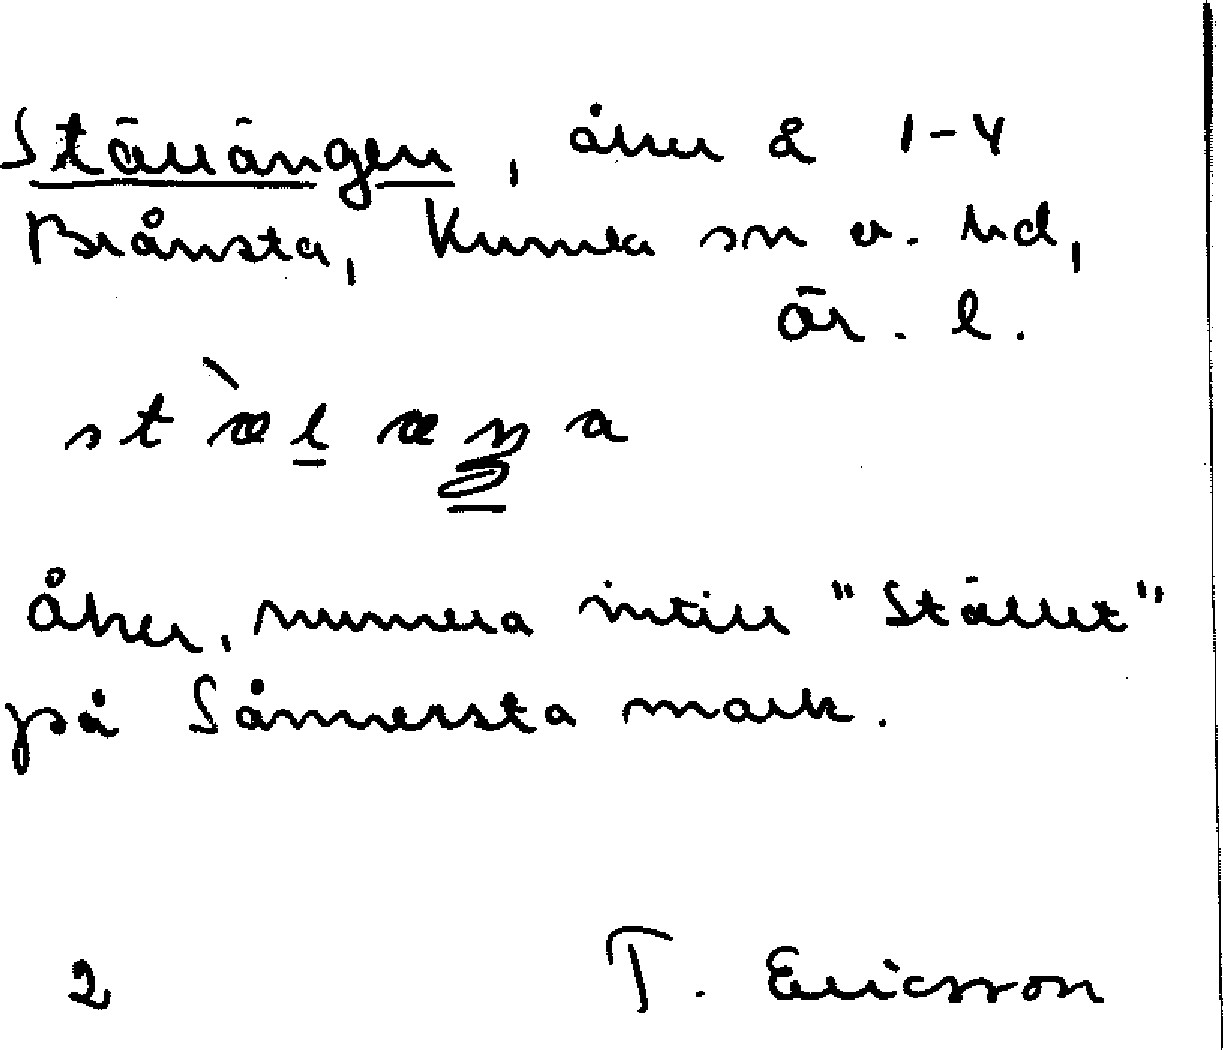 Ställängen, åker å 1-4
Brånsta, Kumla sn o. hd,
Är. l.
st`æl æŋa
Åker, numera intill "Stället"
på Sånnersta mark.
2 T. Ericsson